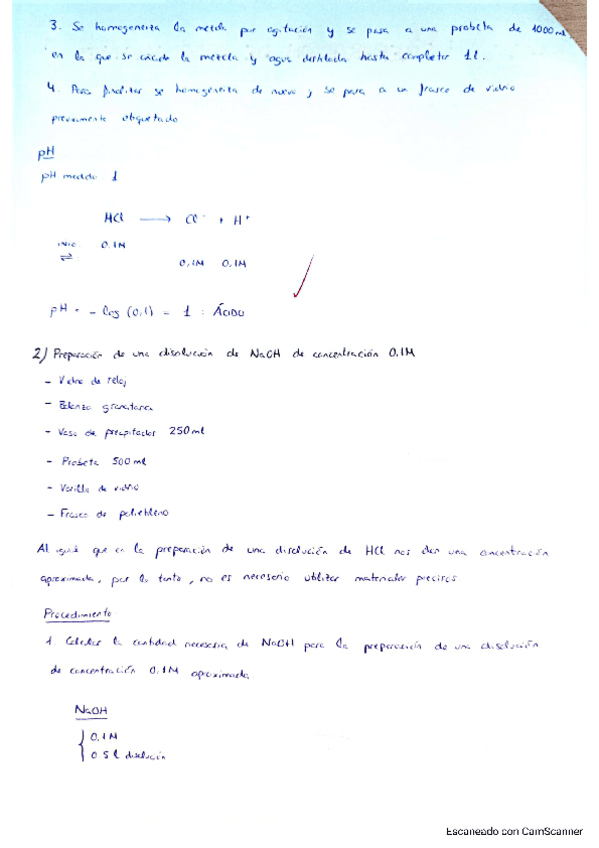 3. Se homogeneiza la mezcla por agitación y se pasa a una probeta de 1000 ml,
en la que se añade la mezcla y agua destilada hasta completar 1l.
4. Para finalizar se homogeneiza de nuevo y se pasa a un frasco de vidrio
previamente etiquetado
pH
pH medido 1
HCl ⟶ Cl⁻ + H⁺
inic 0,1M
⇌ 0,1M 0,1M
pH = - log (0,1) = 1 : ÁCIDO
2) Preparación de una disolución de NaOH de concentración 0.1M
- Vidrio de reloj
- Balanza granataria
- Vaso de precipitados 250 ml
- Probeta 500 ml
- Varilla de vidrio
- Frasco de polietileno
Al igual que en la preparación de una disolución de HCl nos dan una concentración
aproximada, por lo tanto, no es necesario utilizar materiales precisos
Procedimiento
1. Calcular la cantidad necesaria de NaOH para la preparación de una disolución
de concentración 0.1M aproximada.
NaOH
0,1M
0.5 l disolución
Escaneado con CamScanner